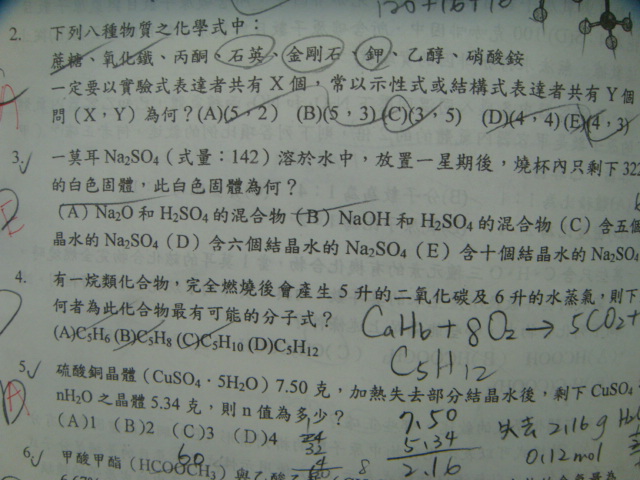 120+16+16
2. 下列八種物質之化學式中：
蔗糖、氧化鐵、丙酮、石英、金剛石、鉀、乙醇、硝酸銨
一定要以實驗式表達者共有 X 個，常以示性式或結構式表達者共有 Y 個
問（X，Y）為何？(A)(5，2) (B)(5，3) (C)(3，5) (D)(4，4) (E)(4，3)
3. 一莫耳 Na₂SO₄（式量：142）溶於水中，放置一星期後，燒杯內只剩下 322
的白色固體，此白色固體為何？
（A）Na₂O 和 H₂SO₄ 的混合物（B）NaOH 和 H₂SO₄ 的混合物（C）含五個
晶水的 Na₂SO₄（D）含六個結晶水的 Na₂SO₄（E）含十個結晶水的 Na₂SO₄
4. 有一烷類化合物，完全燃燒後會產生 5 升的二氧化碳及 6 升的水蒸氣，則下
何者為此化合物最有可能的分子式？
(A)C₅H₆ (B)C₅H₈ (C)C₅H₁₀ (D)C₅H₁₂
CaHb + 8O₂ → 5CO₂ +
C₅H₁₂
5. 硫酸銅晶體（CuSO₄．5H₂O）7.50 克，加熱失去部分結晶水後，剩下 CuSO₄．
nH₂O 之晶體 5.34 克，則 n 值為多少？
(A)1 (B)2 (C)3 (D)4
7.50
5.34
2.16
失去 2.16g H₂O
0.12mol
6. 甲酸甲酯（HCOOCH₃）與乙酸
60